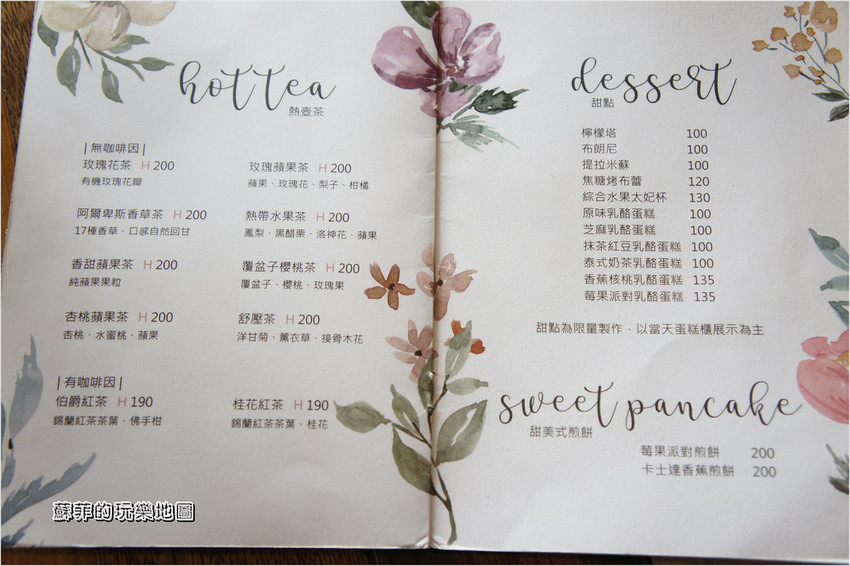 hot tea
熱壺茶
|無咖啡因|
玫瑰花茶 H 200
有機玫瑰花瓣
玫瑰蘋果茶 H 200
蘋果、玫瑰花、梨子、柑橘
阿爾卑斯香草茶 H 200
17種香草、口感自然回甘
熱帶水果茶 H 200
鳳梨、黑醋栗、洛神花、蘋果
香甜蘋果茶 H 200
純蘋果果粒
覆盆子櫻桃茶 H 200
覆盆子、櫻桃、玫瑰果
杏桃蘋果茶 H 200
杏桃、水蜜桃、蘋果
舒壓茶 H 200
洋甘菊、薰衣草、接骨木花
|有咖啡因|
伯爵紅茶 H 190
錫蘭紅茶茶葉、佛手柑
桂花紅茶 H 190
錫蘭紅茶茶葉、桂花
dessert
甜點
檸檬塔 100
布朗尼 100
提拉米蘇 100
焦糖烤布蕾 120
綜合水果太妃杯 130
原味乳酪蛋糕 100
芝麻乳酪蛋糕 100
抹茶紅豆乳酪蛋糕 100
泰式奶茶乳酪蛋糕 100
香蕉核桃乳酪蛋糕 135
莓果派對乳酪蛋糕 135
甜點為限量製作，以當天蛋糕櫃展示為主
sweet pancake
甜美式煎餅
莓果派對煎餅 200
卡士達香蕉煎餅 200
蘇菲的玩樂地圖